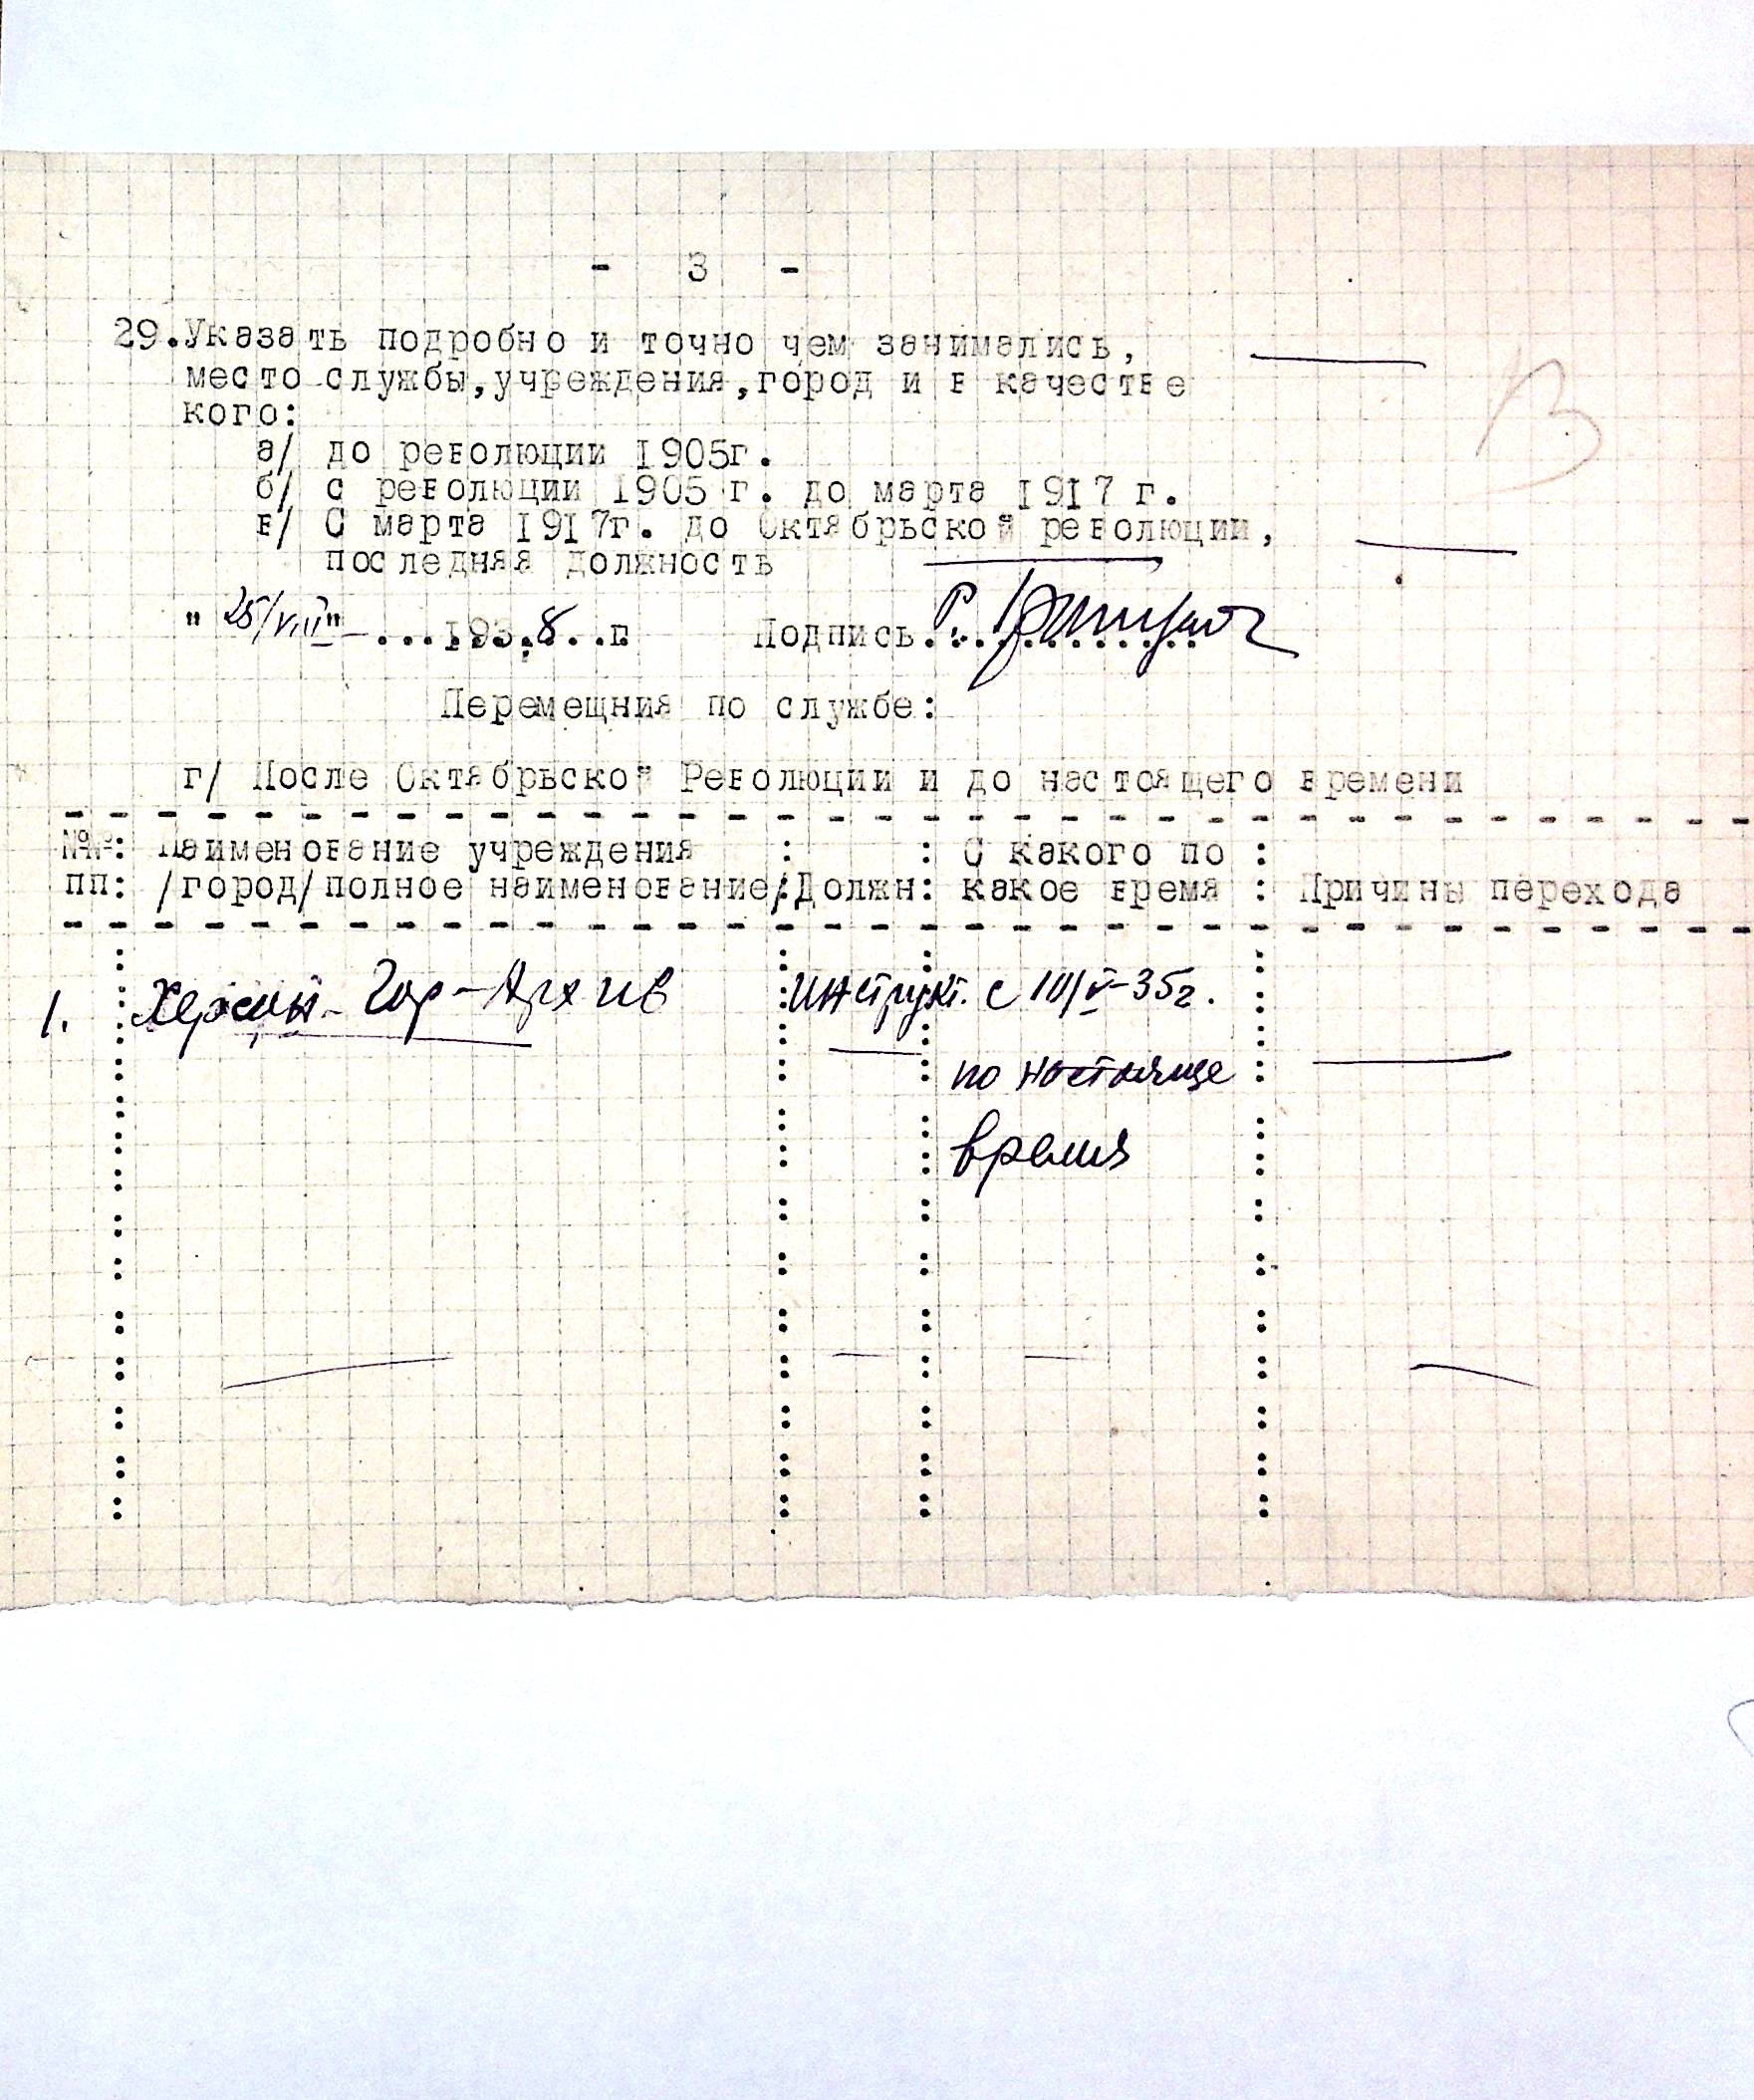 - 3 -
29.Указать подробно и точно чем занимались,
место службы,учреждения,город и в качестве
кого:
а/ до революции 1905г.
б/ с революции 1905 г. до марта 1917 г.
в/ С марта 1917г. до Октябрьской революции,
последняя должность
" 25/VIII" ....193.8..г. Подпись. Р.
Перемещния по службе:
г/ После Октябрьской Революции и до настоящего времени
№№: Наименование учреждения : : С какого по :
пп: /город/полное наименование/:Должн: какое время : Причины перехода
1. Херсон - Гор-Архив Инструкт. с 10/V-35г.
по настояще
время